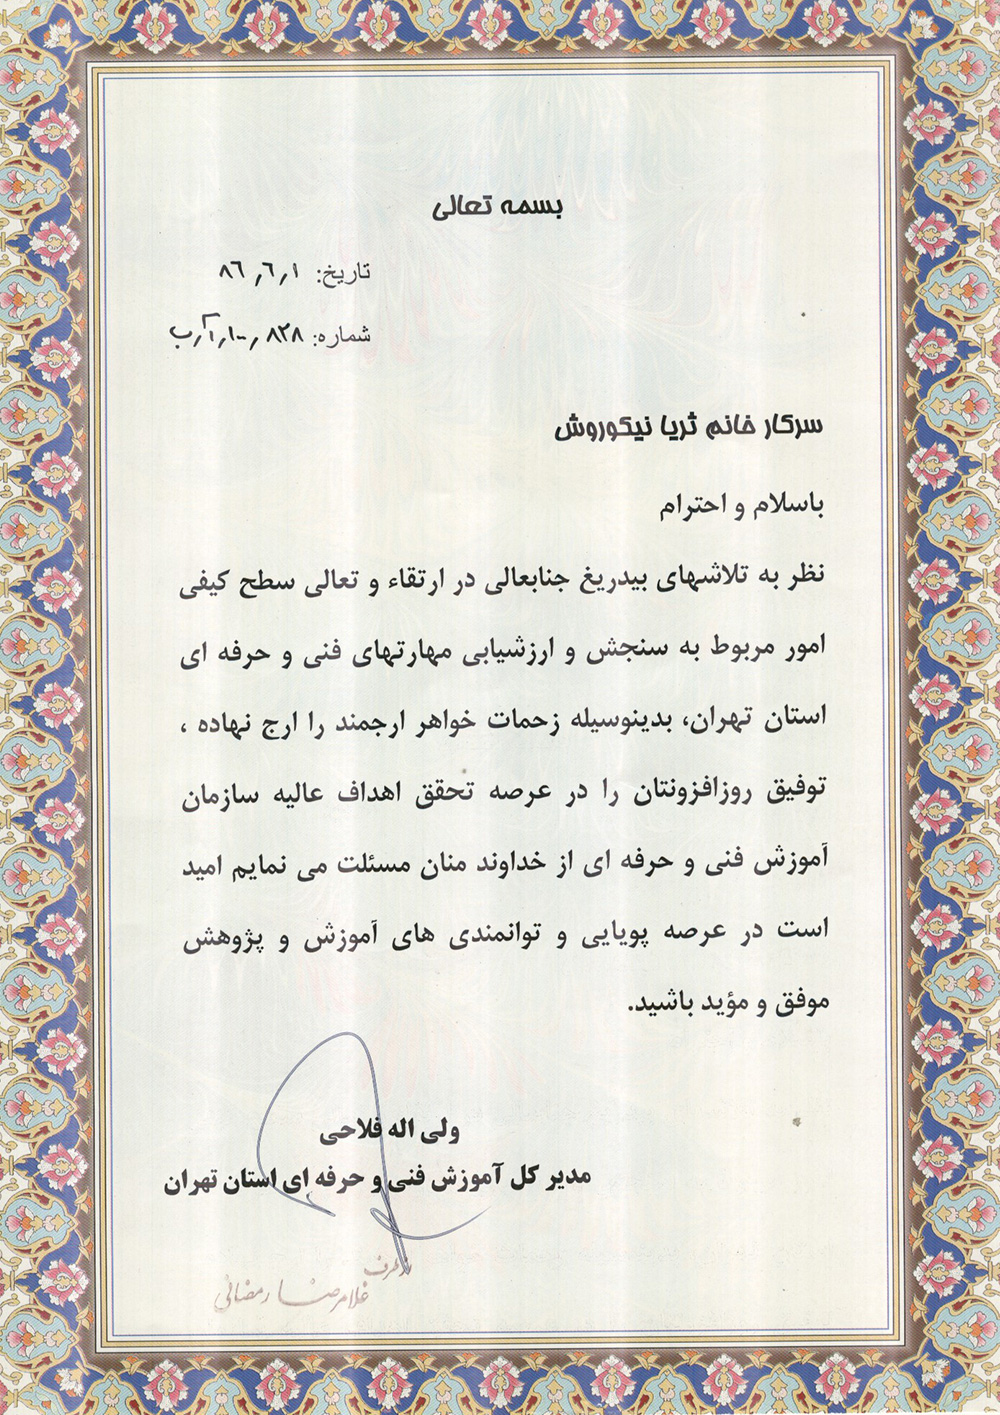 بسمه تعالی
تاریخ: ۸۶٫۶٫۱
شماره: ۸۲۸٫۱۰۰٫آ٫ب
سرکار خانم ثریا نیکوروش
باسلام و احترام
نظر به تلاشهای بیدریغ جنابعالی در ارتقاء و تعالی سطح کیفی
امور مربوط به سنجش و ارزشیابی مهارتهای فنی و حرفه ای
استان تهران، بدینوسیله زحمات خواهر ارجمند را ارج نهاده ،
توفیق روزافزونتان را در عرصه تحقق اهداف عالیه سازمان
آموزش فنی و حرفه ای از خداوند منان مسئلت می نمایم امید
است در عرصه پویایی و توانمندی های آموزش و پژوهش
موفق و مؤید باشید.
ولی اله فلاحی
مدیر کل آموزش فنی و حرفه ای استان تهران
از طرف
غلامرضا رمضانی